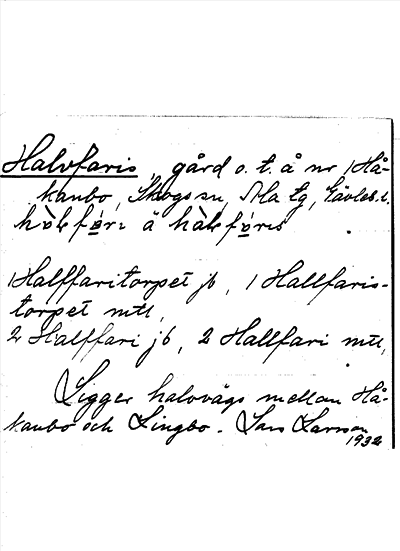 Halvfaris, gård o. t. å nr 1 Hå-
kanbo, Skogs sn, Ala tg, Gävleb. l.
hàlefari å hàlefaris
1 Halffaritorpet jb, 1 Hallfaris-
torpet mtl,
2 Halffari jb, 2 Hallfari mtl,
Ligger halvvägs mellan Hå-
kanbo och Lingbo. Lars Larson
1932